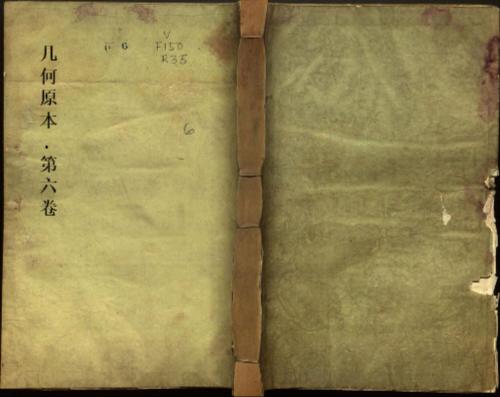 几何原本·第六卷
6
V
F150
R35
6